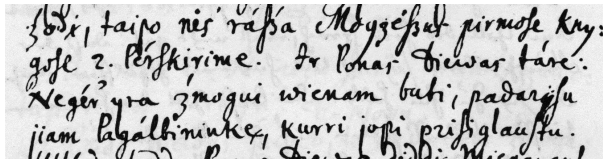 źodi, taipo nės ráßa Moyzéßus pirmose Kny:
gose 2. Pérskirime. Ir Ponas Diewas táre:
Negér yra źmogui wienam buti, padarysu
jiam Pagálbininkę, kurri jopi prisiglaustu.